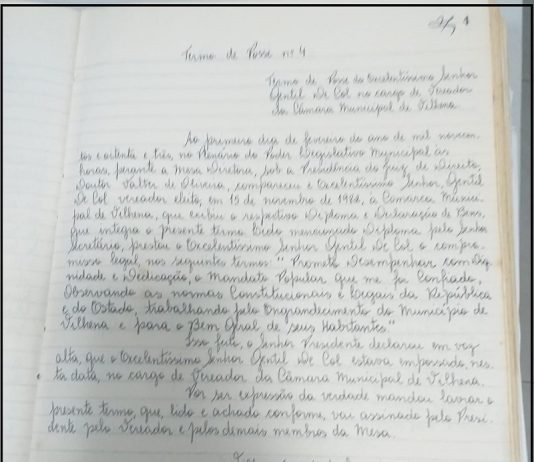 Termo de Posse nº 4
Termo de Posse do Excelentíssimo Senhor
Gentil De Col no cargo de Vereador
da Câmara Municipal de Vilhena
Ao primeiro dia de fevereiro do ano de mil novecen
tos e oitenta e três, no Plenário do Poder Legislativo Municipal às
horas, perante a Mesa Diretora, sob a Presidência do Juiz de Direito,
Doutor Valter de Oliveira, compareceu o Excelentíssimo Senhor, Gentil
De Col vereador eleito, em 15 de novembro de 1982, a Câmara Munici
pal de Vilhena, que exibiu o respectivo Diploma e Declaração de Bens,
que integra o presente termo. Lido mencionado Diploma pelo Senhor
Secretário, prestou o Excelentíssimo Senhor Gentil De Col o compro
misso legal, nos seguintes termos: "Prometo Desempenhar com Dig
nidade e Dedicação, o Mandato Popular que me foi Confiado,
Observando as normas Constitucionais e Legais da República
e do Estado, trabalhando pelo Engrandecimento do Município de
Vilhena e para o Bem Geral de seus Habitantes."
Isso feito, o Senhor Presidente declarou em voz
alta, que o Excelentíssimo Senhor Gentil De Col estava empossado, nes
ta data, no cargo de Vereador da Câmara Municipal de Vilhena.
Por ser expressão da verdade mandou lavrar o
presente termo, que, lido e achado conforme, vai assinado pelo Presi
dente pelo Vereador e pelos demais membros da Mesa.